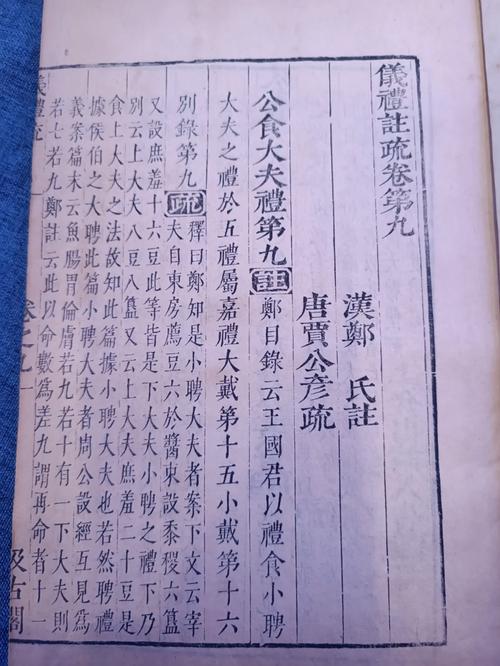 儀禮註疏卷第九
漢鄭 氏註
唐賈公彥疏
公食大夫禮第九 註 鄭目錄云王國君以禮食小聘
大夫之禮於五禮屬嘉禮大戴第十五小戴第十六
別錄第九 疏 釋曰鄭知是小聘大夫者案下文云宰
夫自東房薦豆六於醬東設黍稷六簋
又設庶羞十六豆此等皆是下大夫小聘之禮下乃
別云上大夫八豆八簋又云上大夫庶羞二十豆是
食上大夫之法故知此篇據小聘大夫也若然聘禮
據侯伯之大聘此篇小聘大夫者周公設經互見爲
義案篇末云魚腸胃倫膚若九若十有一下大夫則
若七若九鄭註云此以命數爲差九謂再命者十一
儀禮疏 卷之九 一 汲古閣